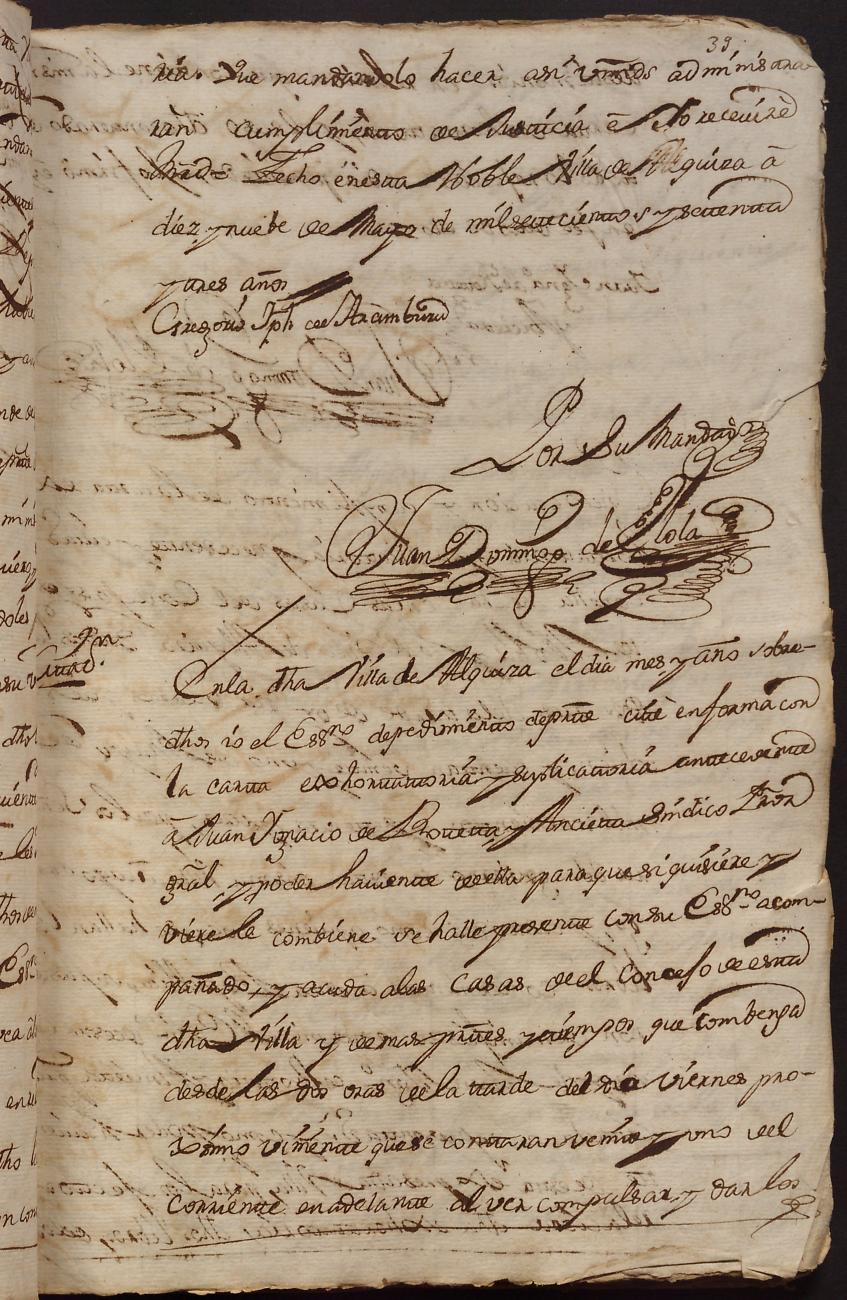 39.
ria. Que mandandolo hacer asi vmds adminisara-
ran cumplimiento de Justicia è Yo receviré
Mrd= Fecho en esta Noble Villa de Alquiza à
diez y nuebe de Mayo de mil setecientos y settenta
y tres años
Gregorio Jph de Aramburu
Por su Mandado
Juan Domingo de Yiola
En la dha Villa de Alquiza el dia mes y año sobre-
dhos io el Essno de pedimiento de parte cité en forma con
la carta exhortatoria y suplicatoria antecedente
à Juan Ygnacio de Yrrueta y Ancieta Sindico Pror
gral, y poder haviente de ella para que si quisiere y
viere le combiene se halle presente con su Essno acom-
pañado, y acuda a las Casas de el Concejo de esta
dha Villa y demas partes y tiempos que combenga
desde las dos oras de la tarde del dia viernes pro-
ximo viniente que se contaran veinte y uno del
corriente en adelante al ver compulsar y dar los